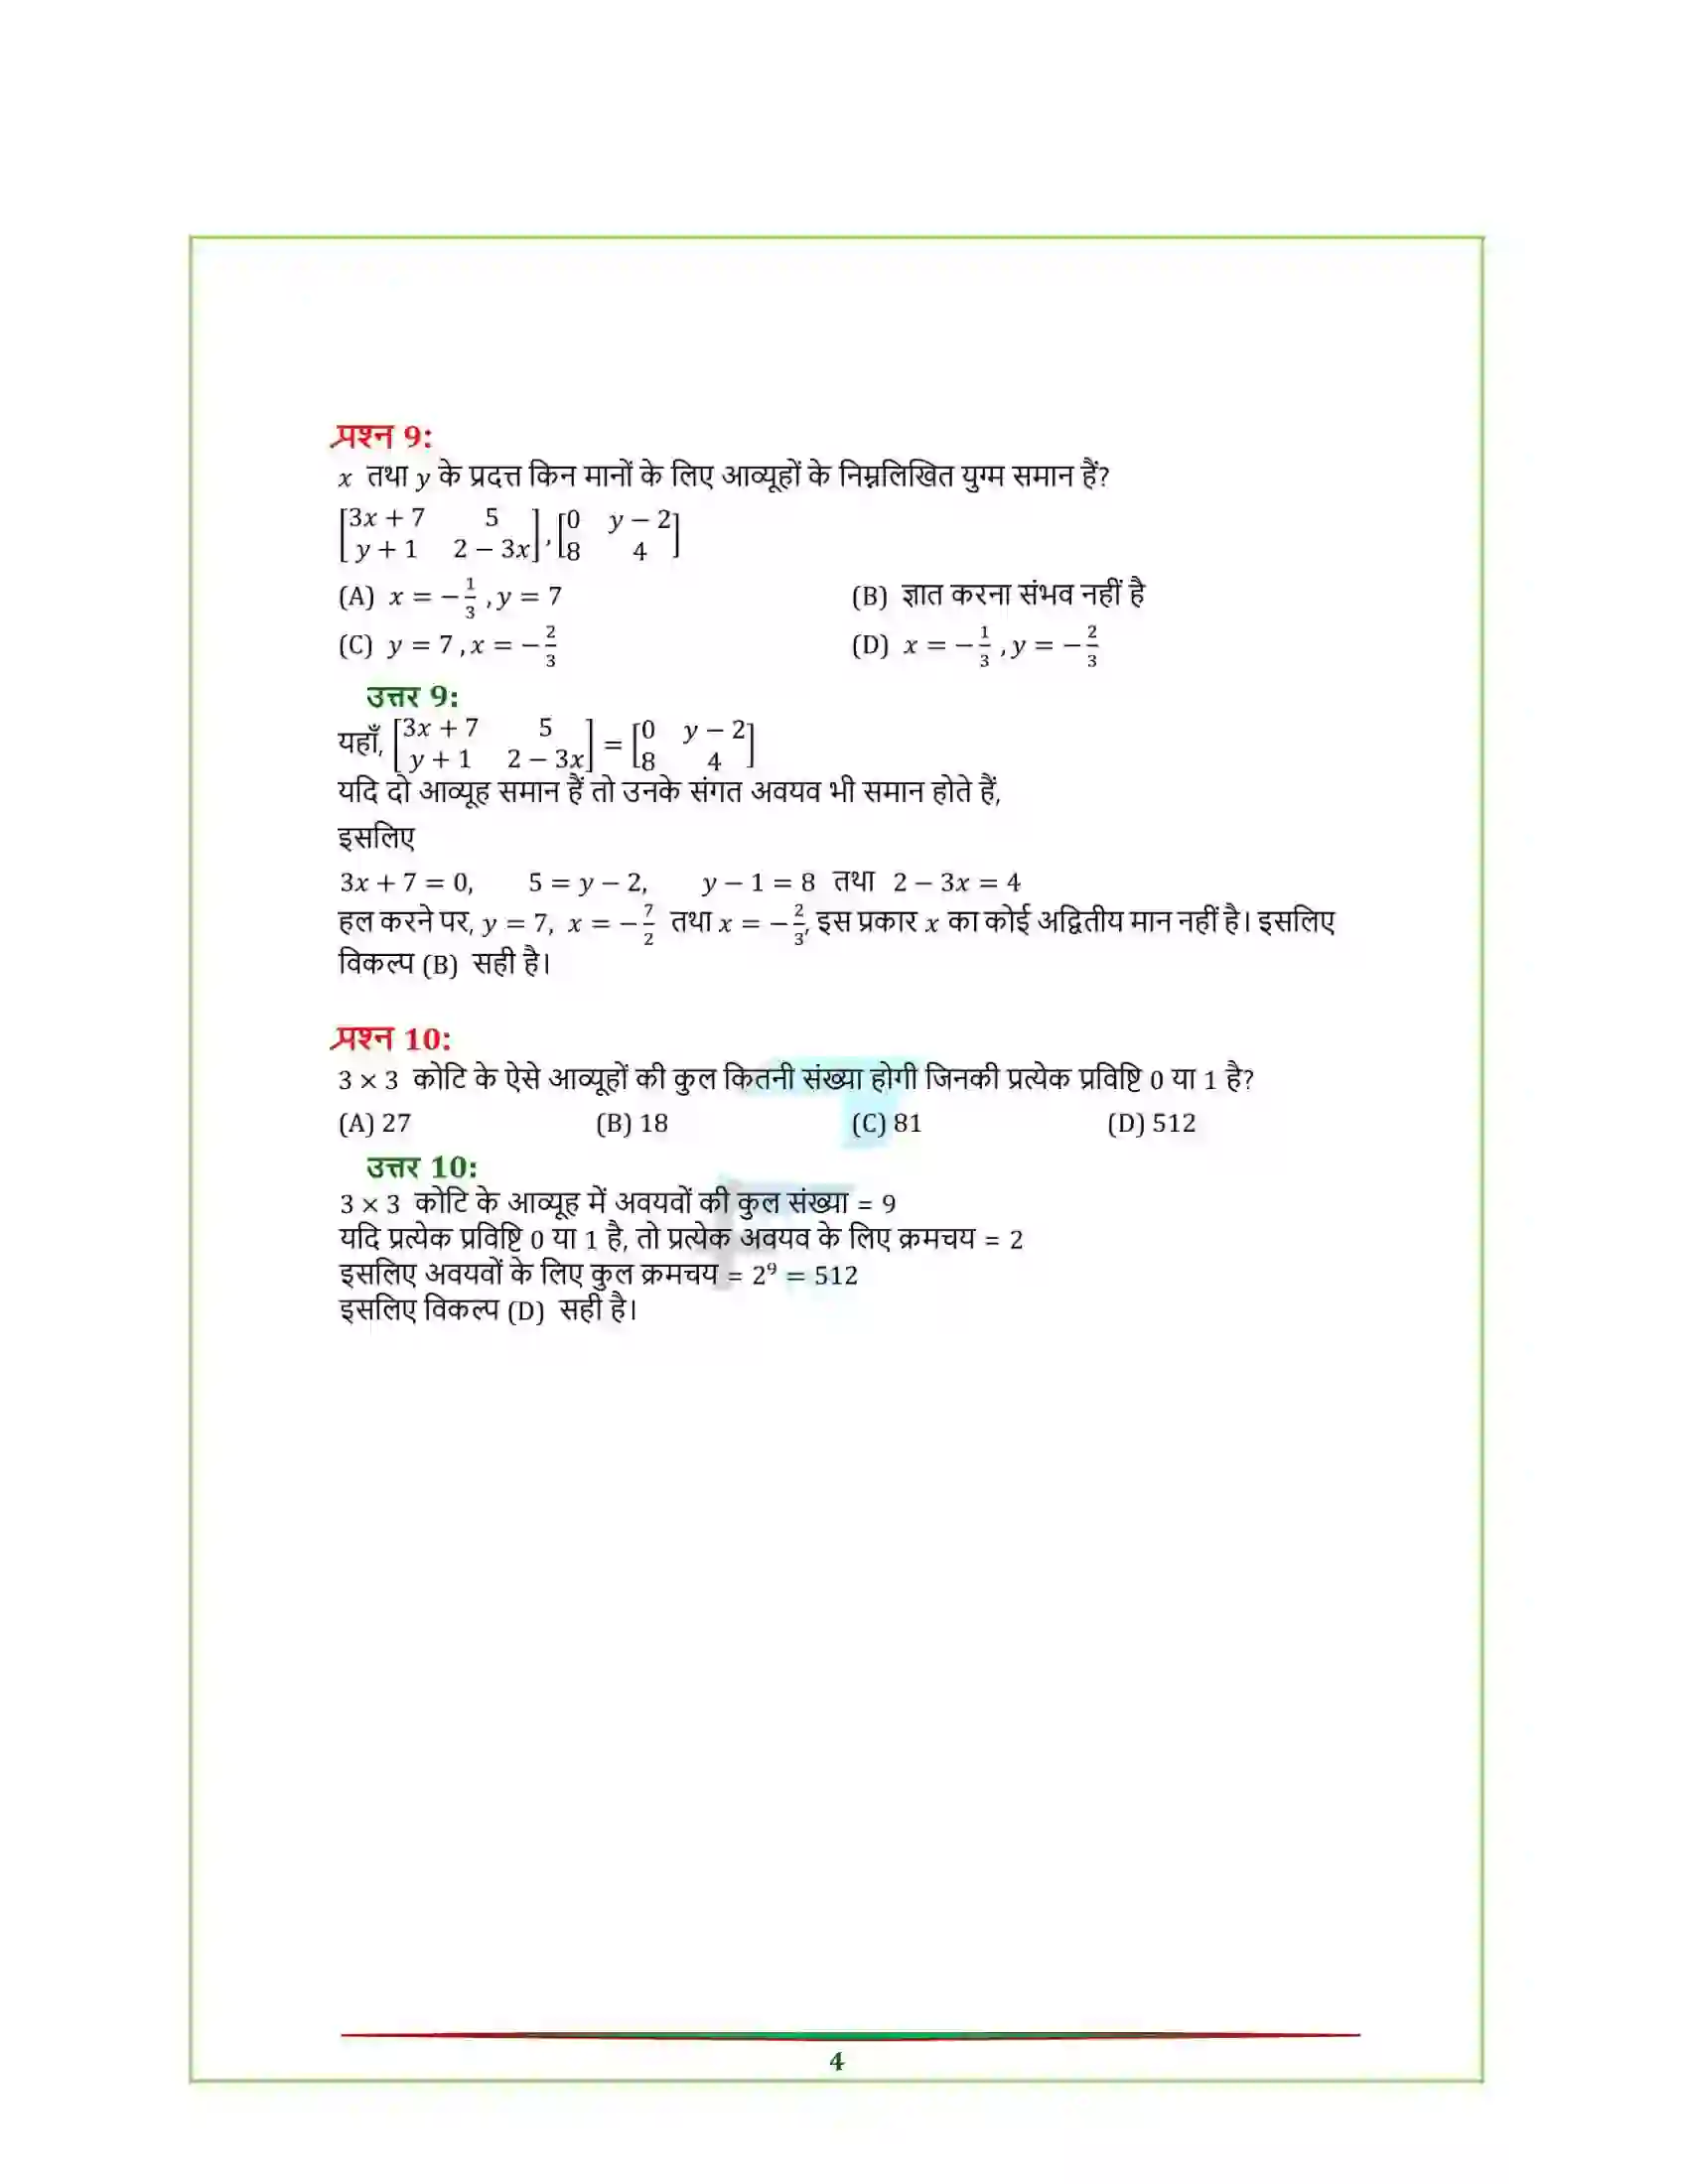 प्रश्न 9:
x तथा y के प्रदत्त किन मानों के लिए आव्यूहों के निम्नलिखित युग्म समान हैं?
[3x + 7 5] , [0 y − 2]
[y + 1 2 − 3x] [8 4]
(A) x = −1/3 , y = 7 (B) ज्ञात करना संभव नहीं है
(C) y = 7 , x = −2/3 (D) x = −1/3 , y = −2/3
उत्तर 9:
यहाँ, [3x + 7 5] = [0 y − 2]
[y + 1 2 − 3x] [8 4]
यदि दो आव्यूह समान हैं तो उनके संगत अवयव भी समान होते हैं,
इसलिए
3x + 7 = 0, 5 = y − 2, y − 1 = 8 तथा 2 − 3x = 4
हल करने पर, y = 7, x = −7/2 तथा x = −2/3, इस प्रकार x का कोई अद्वितीय मान नहीं है। इसलिए
विकल्प (B) सही है।
प्रश्न 10:
3 × 3 कोटि के ऐसे आव्यूहों की कुल कितनी संख्या होगी जिनकी प्रत्येक प्रविष्टि 0 या 1 है?
(A) 27 (B) 18 (C) 81 (D) 512
उत्तर 10:
3 × 3 कोटि के आव्यूह में अवयवों की कुल संख्या = 9
यदि प्रत्येक प्रविष्टि 0 या 1 है, तो प्रत्येक अवयव के लिए क्रमचय = 2
इसलिए अवयवों के लिए कुल क्रमचय = 2⁹ = 512
इसलिए विकल्प (D) सही है।
4